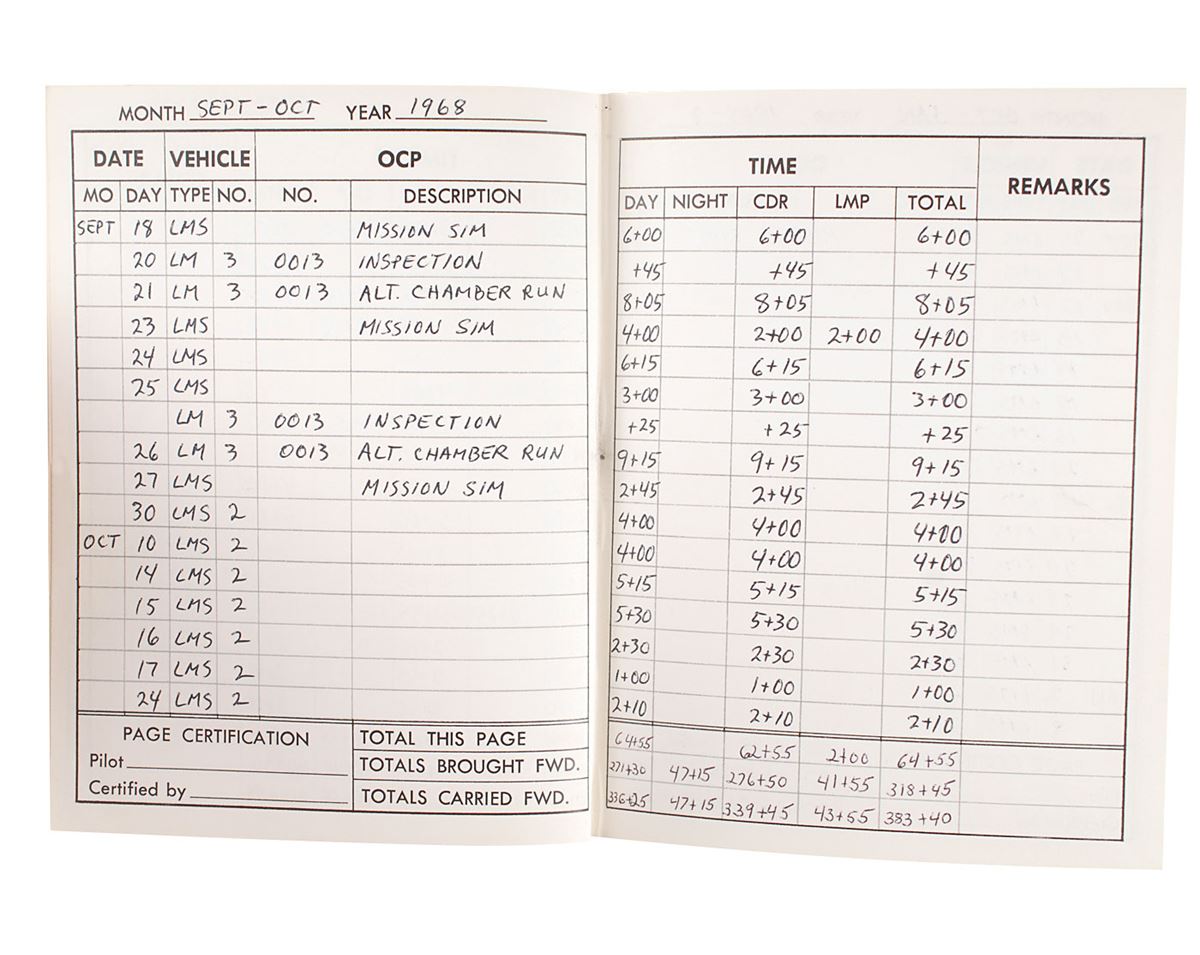 MONTH SEPT - OCT YEAR 1968
DATE VEHICLE OCP TIME REMARKS
MO DAY TYPE NO. NO. DESCRIPTION DAY NIGHT CDR LMP TOTAL
SEPT 18 LMS MISSION SIM 6+00 6+00 6+00
20 LM 3 0013 INSPECTION +45 +45 +45
21 LM 3 0013 ALT. CHAMBER RUN 8+05 8+05 8+05
23 LMS MISSION SIM 4+00 2+00 2+00 4+00
24 LMS 6+15 6+15 6+15
25 LMS 3+00 3+00 3+00
LM 3 0013 INSPECTION +25 +25 +25
26 LM 3 0013 ALT. CHAMBER RUN 9+15 9+15 9+15
27 LMS MISSION SIM 2+45 2+45 2+45
30 LMS 2 4+00 4+00 4+00
OCT 10 LMS 2 4+00 4+00 4+00
14 LMS 2 5+15 5+15 5+15
15 LMS 2 5+30 5+30 5+30
16 LMS 2 2+30 2+30 2+30
17 LMS 2 1+00 1+00 1+00
24 LMS 2 2+10 2+10 2+10
PAGE CERTIFICATION TOTAL THIS PAGE 64+55 62+55 2+00 64+55
Pilot TOTALS BROUGHT FWD. 271+30 47+15 276+50 41+55 318+45
Certified by TOTALS CARRIED FWD. 336+25 47+15 339+45 43+55 383+40